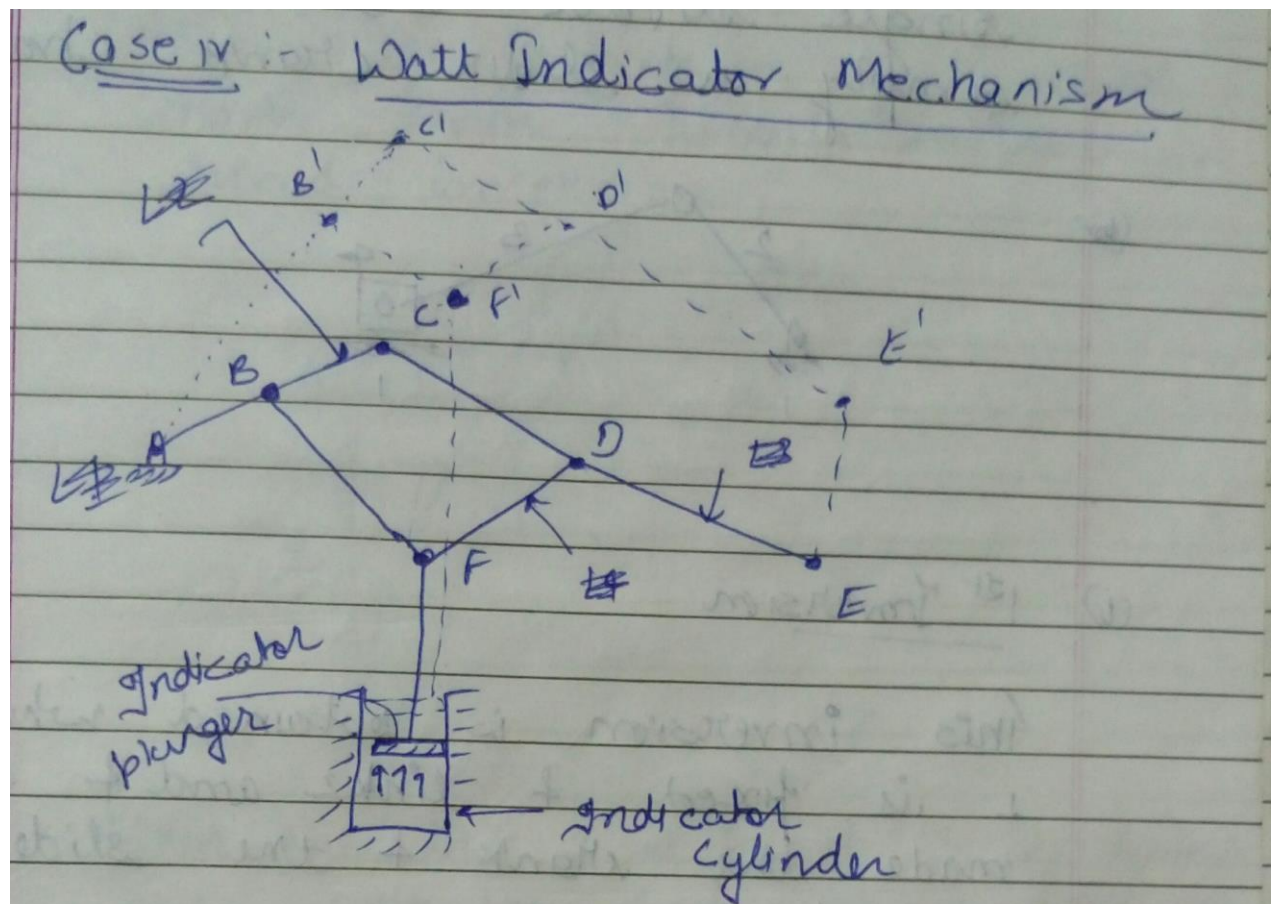 Case IV :- Watt Indicator Mechanism
C'
B'
D'
C
F'
E'
B
A
D
F
E
Indicator
plunger
Indicator
Cylinder